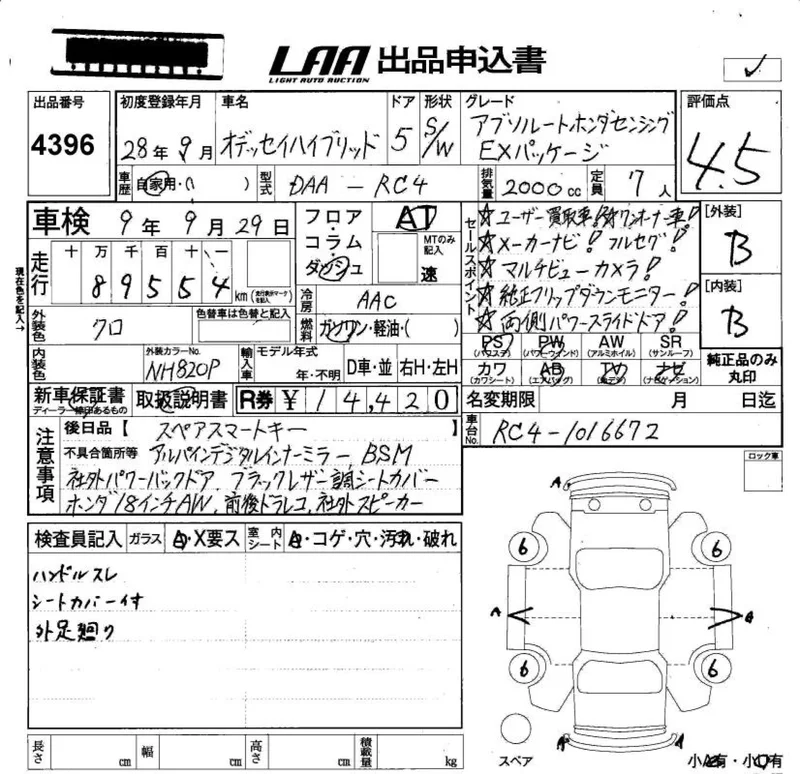 LAA 出品申込書
LIGHT AUTO AUCTION
出品番号 初度登録年月 車名 ドア 形状 グレード 評価点
4396 28年9月 オデッセイハイブリッド 5 S/W アブソルートホンダセンシング EXパッケージ 4.5
車歴 自家用・( ) 型式 DAA-RC4 排気量 2000cc 定員 7人
車検 9年9月29日 フロア・コラム・ダッシュ AT MTのみ記入 速
現在色を記入→
走行 十 万 千 百 十 一
89554 km (走行距離マークを記入)
セールスポイント
☆ユーザー買取車!☆ワンオーナー車!
☆メーカーナビ!フルセグ!
☆マルチビューカメラ!
☆純正フリップダウンモニター!
☆両側パワースライドドア!
[外装] B
[内装] B
冷房 AAC
外装色 クロ 色替車は色替と記入 燃料 ガソリン・軽油・( )
内装色 外装カラーNo. NH820P 輸入車 モデル年式 年・不明 D車・並 右H・左H
PS (パワステ) PW (パワーウインド) AW (アルミホイル) SR (サンルーフ)
カワ (カワシート) AB (エアバッグ) TV ナビ (ナビゲーション)
純正品のみ丸印
新車保証書 ディーラー捺印あるもの 取扱説明書 R券 ¥14,420 名変期限 月 日迄
車台No. RC4-1016672
注意事項
後日品【 スペアスマートキー 】
不具合箇所等 アルパインデジタルインナーミラー、BSM
社外パワーバックドア、ブラックレザー調シートカバー
ホンダ18インチAW、前後ドラレコ、社外スピーカー
ロック車
検査員記入 ガラス A・X要ス 室内シート A・コゲ・穴・汚れ・破れ
ハンドルスレ
シートカバー付
外足廻り
A
6 6
A A
6 6
A A
スペア
長さ cm 幅 cm 高さ cm 積載量 kg
小A有・小U有